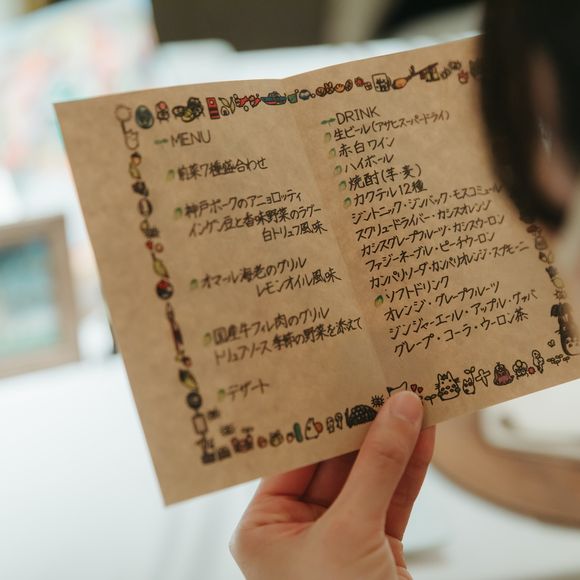 MENU
前菜7種盛合わせ
神戸ポークのアニョロッティ
インゲン豆と香味野菜のラグー
白トリュフ風味
オマール海老のグリル
レモンオイル風味
国産牛フィレ肉のグリル
トリュフソース 季節の野菜を添えて
デザート
DRINK
生ビール(アサヒスーパードライ)
赤・白ワイン
ハイボール
焼酎(芋・麦)
カクテル12種
ジントニック・ジンバック・モスコミュール
スクリュードライバー・カシスオレンジ
カシスグレープフルーツ・カシスウーロン
ファジーネーブル・ピーチウーロン
カンパリソーダ・カンパリオレンジ・スプモーニ
ソフトドリンク
オレンジ・グレープフルーツ
ジンジャーエール・アップル・グァバ
グレープ・コーラ・ウーロン茶